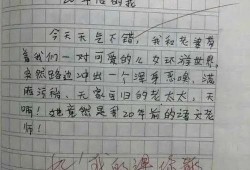 20年后的我
今天天气不错，我和老婆带
着我们一对可爱的儿女环游世界，
突然路边冲出一个浑身恶臭、满
脸污秽、无家可归的老太太，天
啊！她竟然是我20年前的语文老
师！